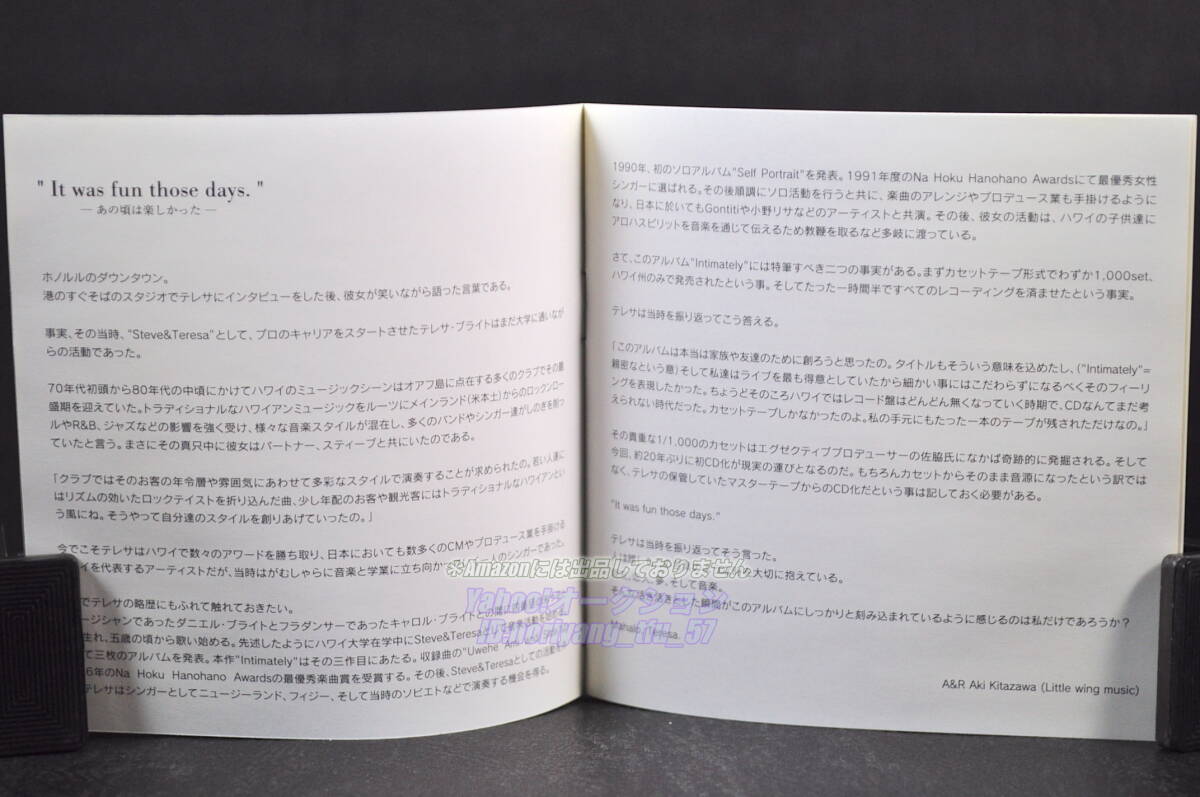 " It was fun those days. "
― あの頃は楽しかった ―
ホノルルのダウンタウン。
港のすぐそばのスタジオでテレサにインタビューをした後、彼女が笑いながら語った言葉である。
事実、その当時、“Steve&Teresa”として、プロのキャリアをスタートさせたテレサ・ブライトはまだ大学に通いなが
らの活動であった。
70年代初頭から80年代の中頃にかけてハワイのミュージックシーンはオアフ島に点在する多くのクラブでその最
盛期を迎えていた。トラディショナルなハワイアンミュージックをルーツにメインランド(米本土)からのロックンロー
ルやR&B、ジャズなどの影響を強く受け、様々な音楽スタイルが混在し、多くのバンドやシンガー達がしのぎを削っ
ていたと言う。まさにその真只中に彼女はパートナー、スティーブと共にいたのである。
「クラブではそのお客の年令層や雰囲気にあわせて多彩なスタイルで演奏することが求められたの。若い人達に
はリズムの効いたロックテイストを折り込んだ曲、少し年配のお客や観光客にはトラディショナルなハワイアンとい
う風にね。そうやって自分達のスタイルを創りあげていったの。」
今でこそテレサはハワイで数々のアワードを勝ち取り、日本においても数多くのCMやプロデュース業を手掛ける
イを代表するアーティストだが、当時はがむしゃらに音楽と学業に立ち向か 一人のシンガーであった。
でテレサの略歴にもふれて触れておきたい。
ージシャンであったダニエル・ブライトとフラダンサーであったキャロル・ブライトとの間に
生れ、五歳の頃から歌い始める。先述したようにハワイ大学在学中にSteve&Teresaとして音楽活動を
て三枚のアルバムを発表。本作“Intimately”はその三作目にあたる。収録曲の“Uwehe
6年のNa Hoku Hanohano Awardsの最優秀楽曲賞を受賞する。その後、Steve&Teresaとしての活動を
テレサはシンガーとしてニュージーランド、フィジー、そして当時のソビエトなどで演奏する機会を得る。
1990年、初のソロアルバム“Self Portrait”を発表。1991年度のNa Hoku Hanohano Awardsにて最優秀女性
シンガーに選ばれる。その後順調にソロ活動を行うと共に、楽曲のアレンジやプロデュース業も手掛けるように
なり、日本に於いてもGontitiや小野リサなどのアーティストと共演。その後、彼女の活動は、ハワイの子供達に
アロハスピリットを音楽を通じて伝えるため教鞭を取るなど多岐に渡っている。
さて、このアルバム“Intimately”には特筆すべき二つの事実がある。まずカセットテープ形式でわずか1,000set、
ハワイ州のみで発売されたという事。そしてたった一時間半ですべてのレコーディングを済ませたという事実。
テレサは当時を振り返ってこう答える。
「このアルバムは本当は家族や友達のために創ろうと思ったの。タイトルもそういう意味を込めたし、(“Intimately”=
親密なという意)そして私達はライブを最も得意としていたから細かい事にはこだわらずになるべくそのフィーリ
ングを表現したかった。ちょうどそのころハワイではレコード盤はどんどん無くなっていく時期で、CDなんてまだ考
えられない時代だった。カセットテープしかなかったのよ。私の手元にもたった一本のテープが残されただけなの。」
その貴重な1/1,000のカセットはエグゼクティブプロデューサーの佐脇氏になかば奇跡的に発掘される。そして
今回、約20年ぶりに初CD化が現実の運びとなるのだ。もちろんカセットからそのまま音源になったという訳では
なく、テレサの保管していたマスターテープからのCD化だという事は記しておく必要がある。
“It was fun those days.”
テレサは当時を振り返ってそう言った。
人は誰 大切に抱えている。
夢、そして音楽。
その 活き活きとした瞬間がこのアルバムにしっかりと刻み込まれているように感じるのは私だけであろうか？
Mahalo Teresa.
A&R Aki Kitazawa (Little wing music)
※Amazonには出品しておりません
Yahoo!オークション